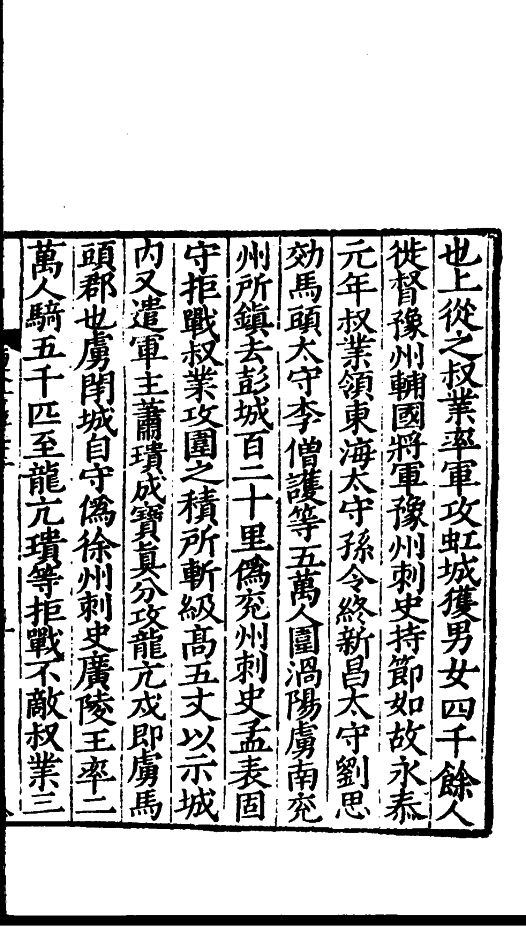 也上從之叔業率軍攻虹城獲男女四千餘人
徙督豫州輔國將軍豫州刺史持節如故永泰
元年叔業領東海太守孫令終新昌太守劉思
効馬頭太守李僧護等五萬人圍渦陽虜南兖
州所鎮去彭城百二十里僞兖州刺史孟表固
守拒戰叔業攻圍之積所斬級髙五丈以示城
内又遣軍主蕭璝成寶真分攻龍亢戍即虜馬
頭郡也虜閉城自守僞徐州刺史廣陵王率二
萬人騎五千匹至龍亢璝等拒戰不敵叔業三